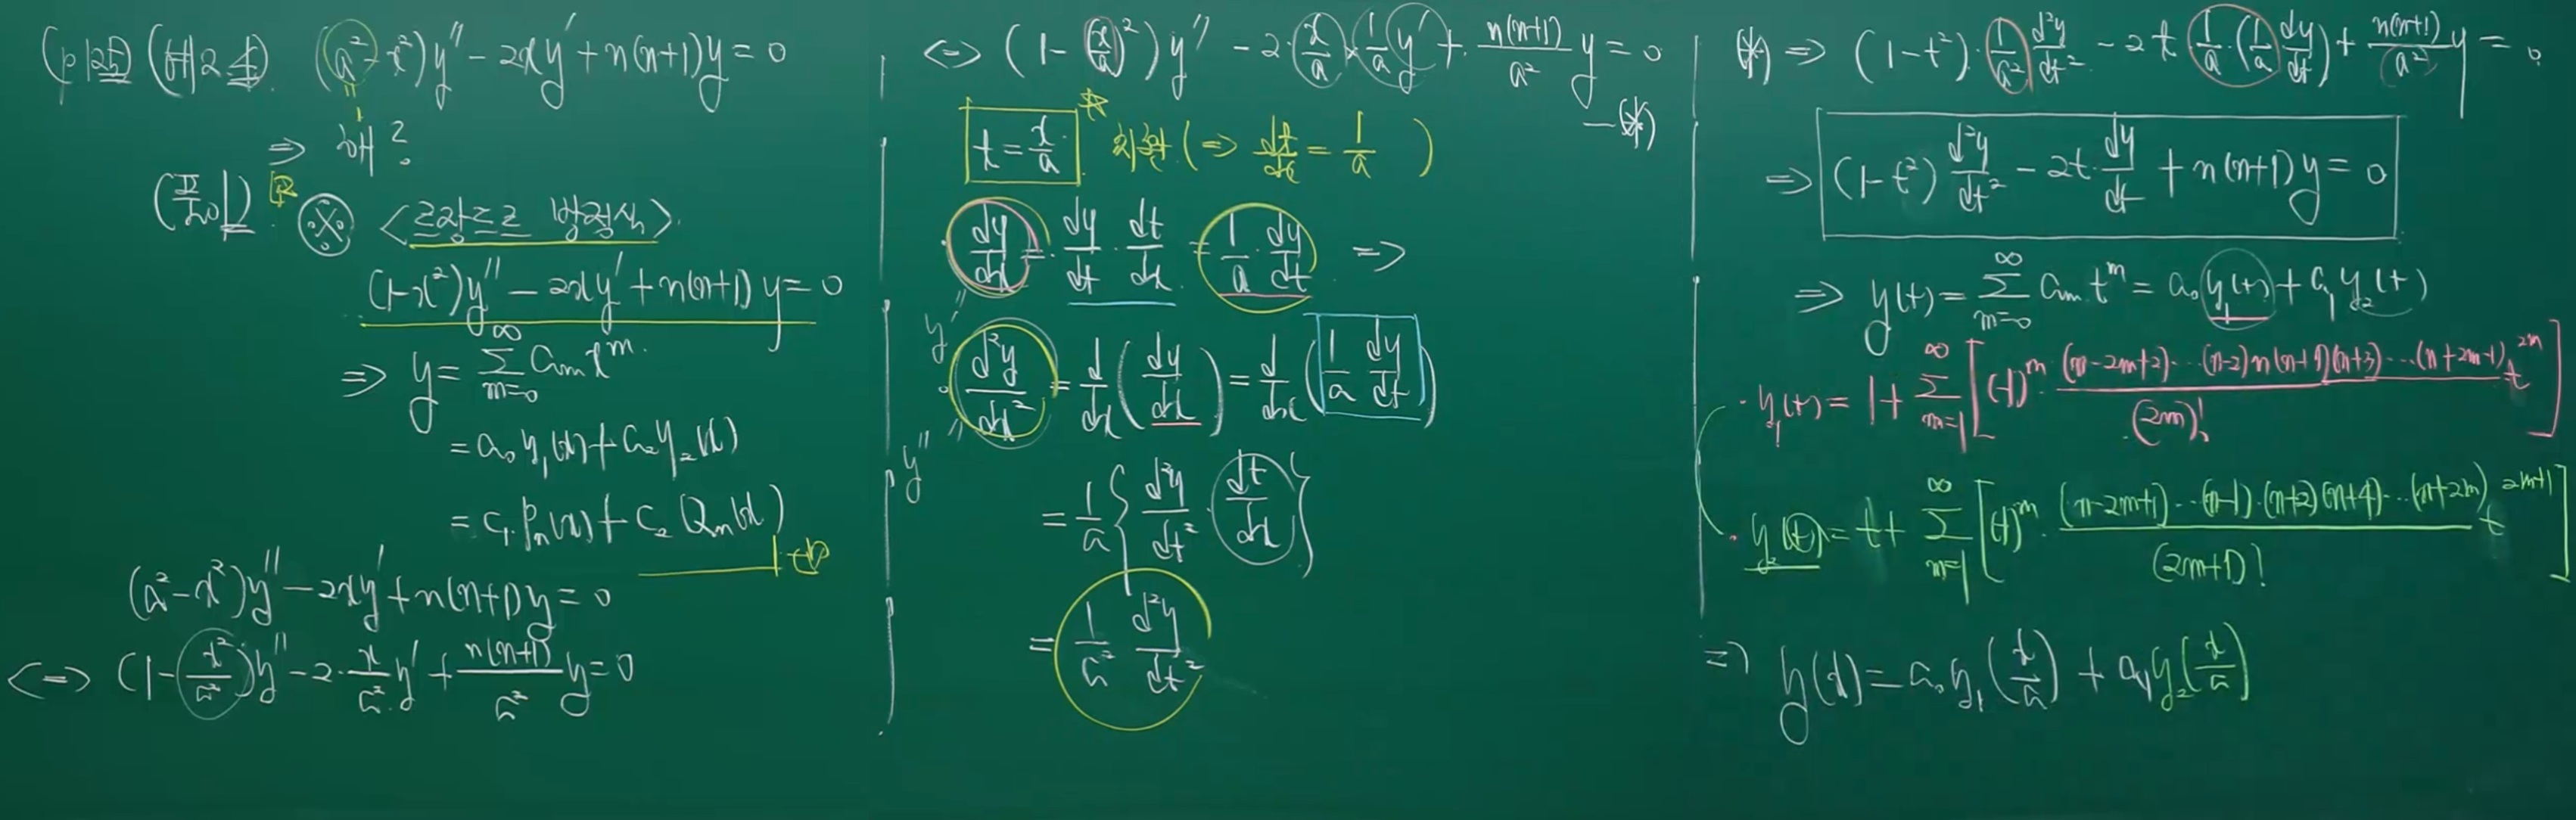 (p125) (예2.4) (a²-x²)y''-2xy'+n(n+1)y=0
⇒ 해?
(풀이)
<르장드르 방정식>
(1-x²)y''-2xy'+n(n+1)y=0
⇒ y=∑_{m=0}^{∞} a_m x^m.
=a₀y₁(x)+a₂y₂(x)
=c₁P_n(x)+c₂Q_n(x)
(a²-x²)y''-2xy'+n(n+1)y=0
⇔ (1-x²/a²)y''-2·x/a² y'+n(n+1)/a² y=0
⇔ (1-(x/a)²)y''-2·x/a×1/a y'+n(n+1)/a² y=0
-(*)
t=x/a 치환(⇒ dt/dx=1/a)
dy/dx=dy/dt·dt/dx=1/a·dy/dt ⇒
y'
d²y/dx²=d/dx(dy/dx)=d/dx(1/a dy/dt)
y''
=1/a{d²y/dt²·dt/dx}
=1/a² d²y/dt²
(*) ⇒ (1-t²)·1/a² d²y/dt²-2t 1/a·(1/a dy/dt)+n(n+1)/a² y=0
⇒ (1-t²)d²y/dt²-2t·dy/dt+n(n+1)y=0
⇒ y(t)=∑_{m=0}^{∞} a_m t^m=a₀y₁(t)+a₁y₂(t)
·y₁(t)=1+∑_{m=1}^{∞}[(-1)^m·(n-2m+2)···(n-2)n(n+1)(n+3)···(n+2m-1)/(2m)! t^{2m}]
·y₂(t)=t+∑_{m=1}^{∞}[(-1)^m·(n-2m+1)···(n-1)·(n+2)(n+4)···(n+2m)/(2m+1)! t^{2m+1}]
⇒ y(x)=a₀y₁(x/a)+a₁y₂(x/a)